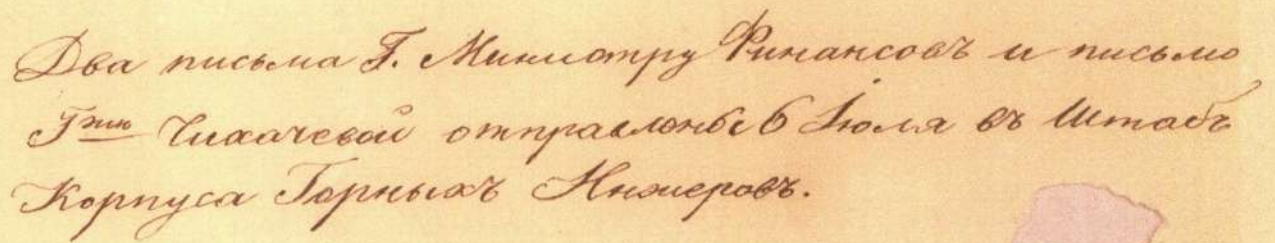 Два письма Г. Министру Финансовъ и письмо
Гжи Чихачевой отправлены 6 Іюля въ Штабъ
Корпуса Горныхъ Инжеровъ.